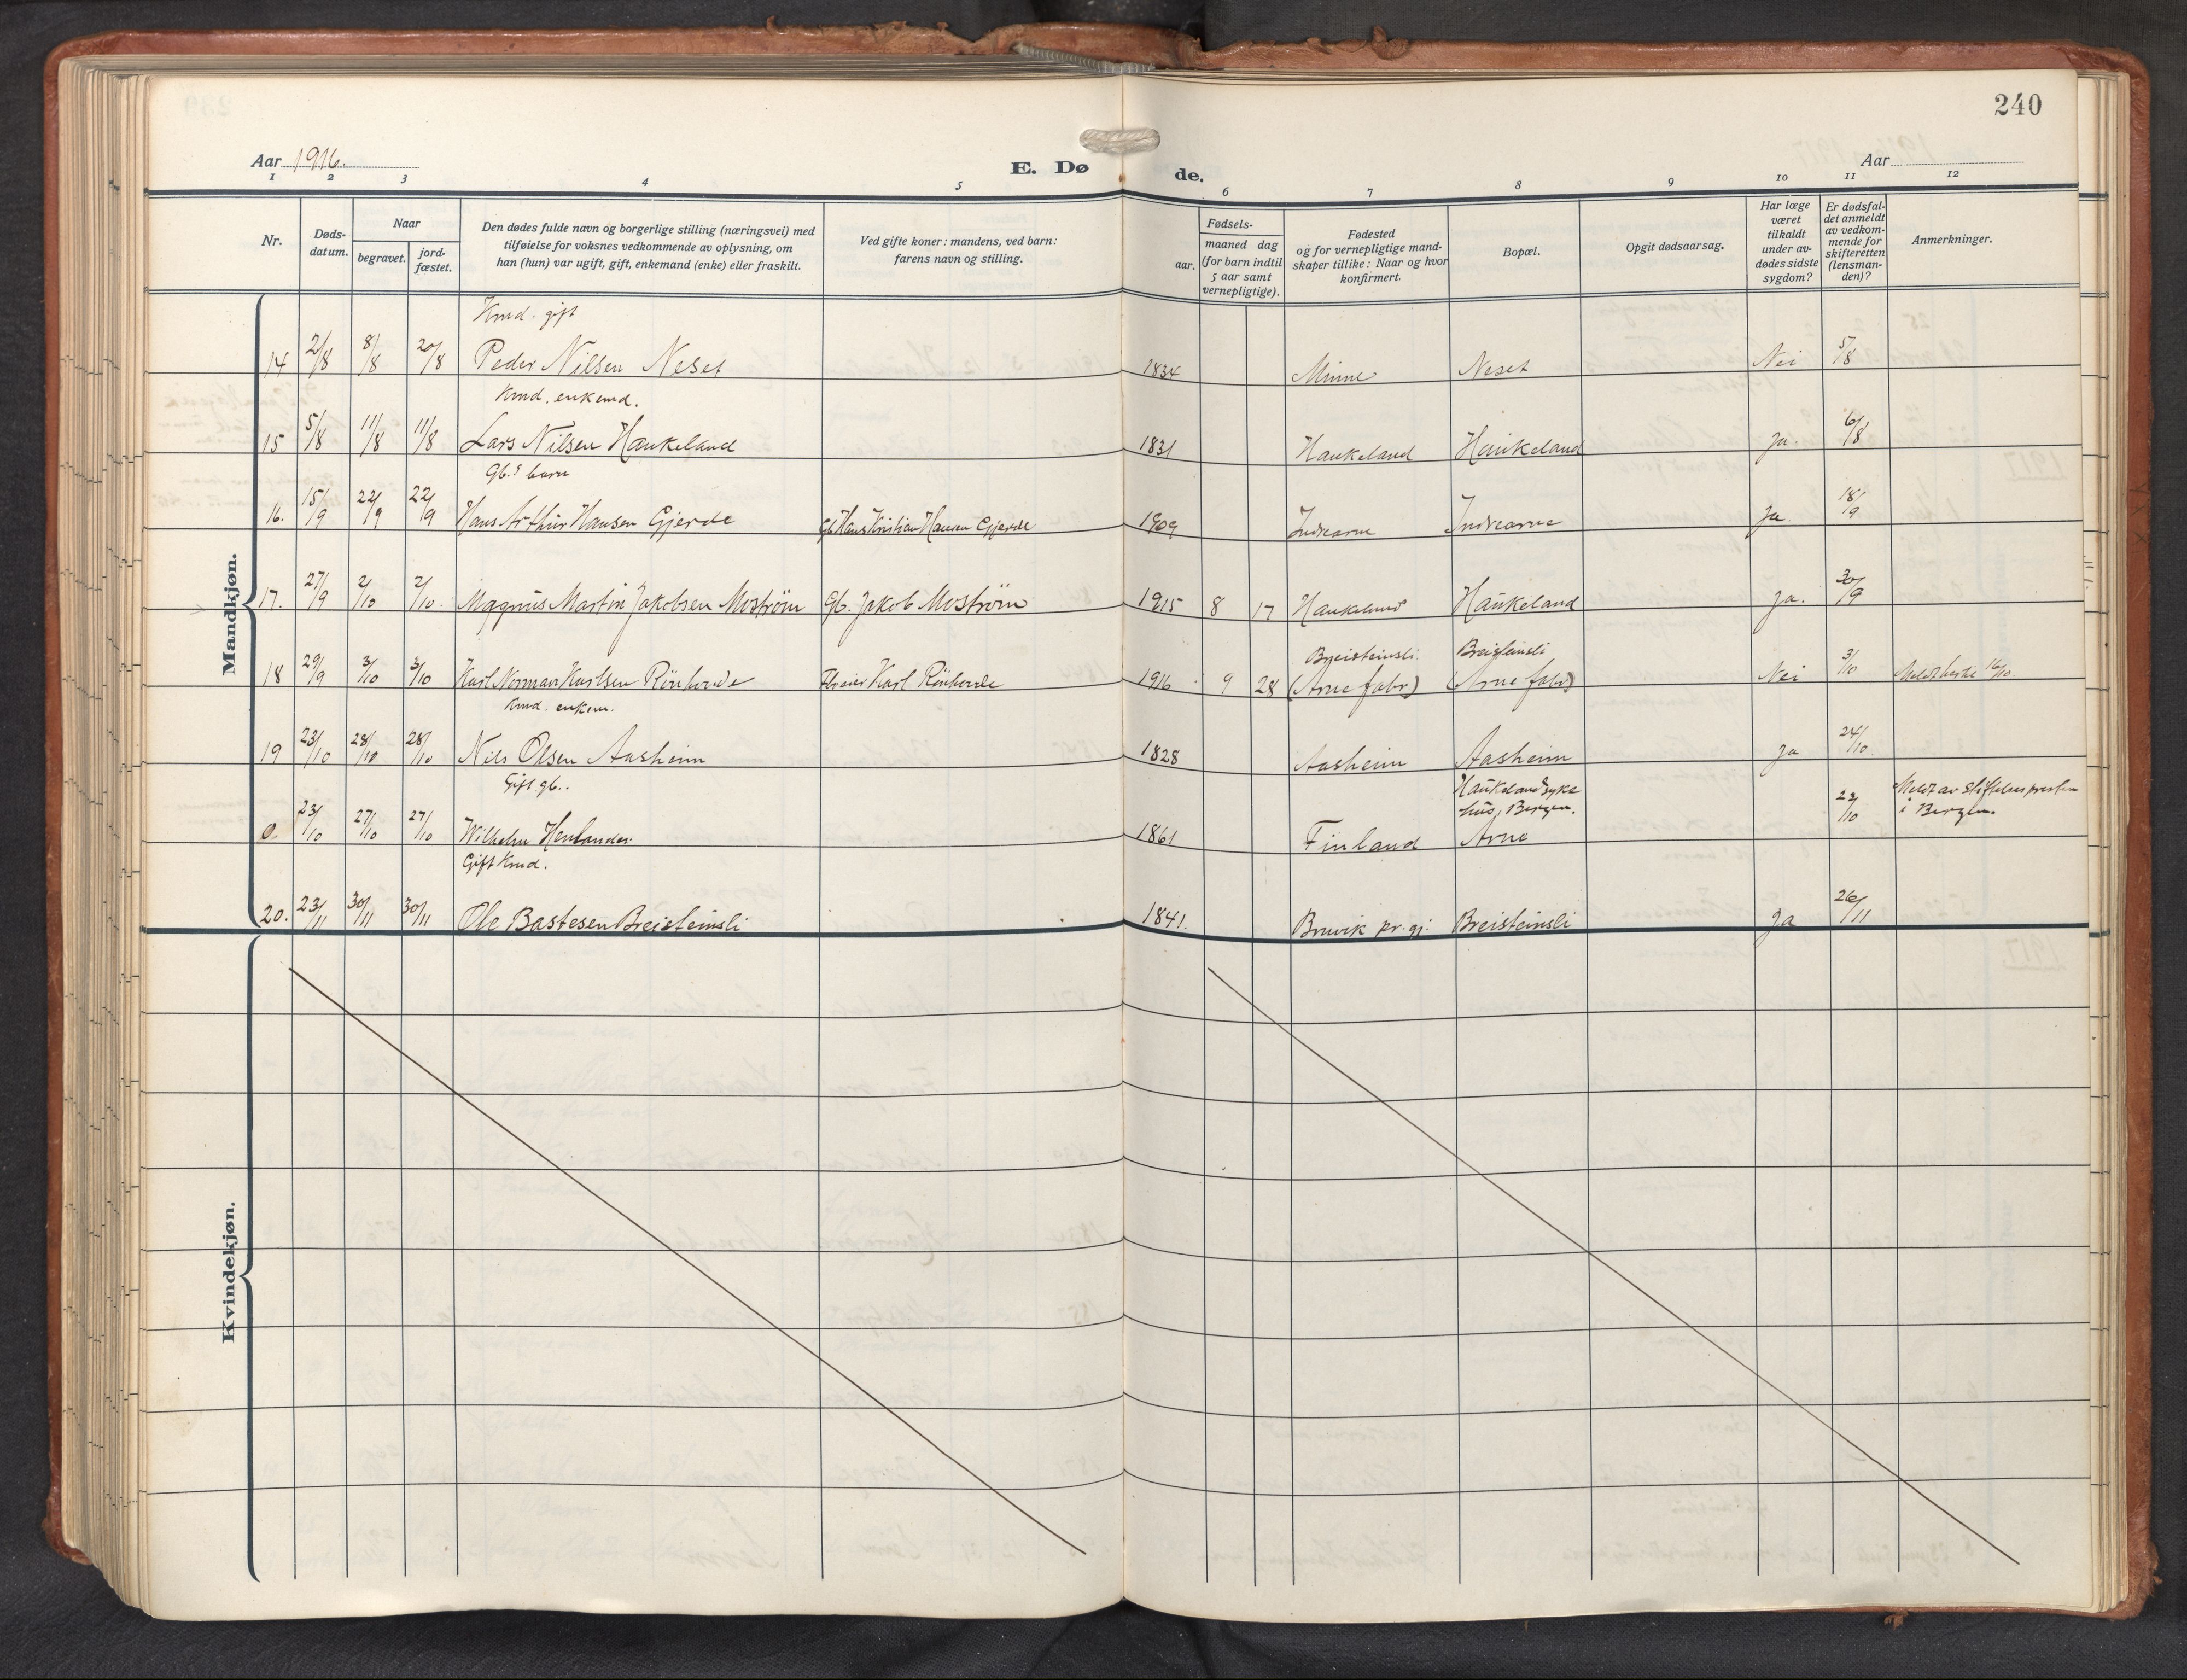 240
Aar 1916. E. Dø de. Aar
1 2 3 4 5 6 7 8 9 10 11 12
Nr.
Døds-
datum.
Naar
begravet.
jord-
fæstet.
Den dødes fulde navn og borgerlige stilling (næringsvei) med
tilføielse for voksnes vedkommende av oplysning, om
han (hun) var ugift, gift, enkemand (enke) eller fraskilt.
Ved gifte koner: mandens, ved barn:
farens navn og stilling.
Fødsels-
aar.
maaned dag
(for barn indtil
5 aar samt
vernepligtige).
Fødested
og for vernepligtige mand-
skaper tillike: Naar og hvor
konfirmert.
Bopæl.
Opgit dødsaarsag.
Har læge
været
tilkaldt
under av-
dødes sidste
sygdom?
Er dødsfal-
det anmeldt
av vedkom-
mende for
skifteretten
(lensman-
den)?
Anmerkninger.
Mandkjøn.
Kmd. gift
14 2/8 8/8 20/8 Peder Nilsen Neset 1834 Minne Neset Nei 5/8
Kmd. enkemd.
15 5/8 11/8 11/8 Lars Nilsen Haukeland 1831 Haukeland Haukeland Ja. 6/8
Gb.s barn
16. 15/9 22/9 22/9 Hans Arthur Hansen Gjerde Gb. Hans Kristian Hansen Gjerde 1909 Indrearne Indrearne Ja 18/9
17. 27/9 2/10 2/10. Magnus Martin Jakobsen Moström Gb. Jakob Moström 1915 8 17 Haukeland Haukeland Ja. 30/9
Breisteinsli Breisteinsli
18 29/9 3/10 3/10 Karl Norman Karlsen Rönhovde Karl Rönhovde 1916 9 28 (Arne fabr) (Arne fabr) Nei 3/10 16/10.
Kmd. enkem.
19 23/10 28/10 28/10 Nils Olsen Aasheim 1828 Aasheim Aasheim Ja 24/10.
Gift gb..
Haukeland syke
hus, Bergen.
Meldt av stiftelsespresten
i Bergen.
0. 23/10 27/10 27/10 Wilhelm 1861 Finland Arne 23/10
Gift Kmd.
20. 23/11 30/11 30/11 Ole Bastesen Breisteinsli 1841. Bruvik pr.gj. Breisteinsli Ja 26/11
Kvindekjøn.